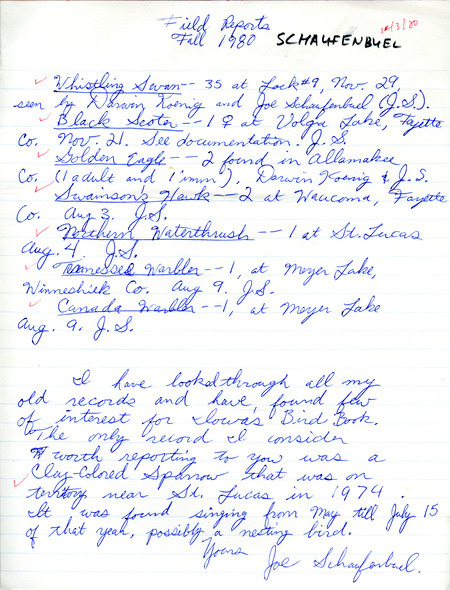 Field Reports
Fall 1980 SCHAUFENBUEL 12/3/80
Whistling Swan-- 35 at Lock #9, Nov. 29,
seen by Darwin Koenig and Joe Schaufenbuel (J.S.).
Black Scoter--1♀ at Volga Lake, Fayette
Co. Nov. 21. See documentation. J.S.
Golden Eagle--2 found in Allamakee
Co. (1 adult and 1 imm), Darwin Koenig & J.S.
Swainson's Hawk--2 at Waucoma, Fayette
Co. Aug 3. J.S.
Northern Waterthrush--1 at St. Lucas
Aug. 4. J.S.
Tennessee Warbler--1, at Meyer Lake,
Winneshiek Co. Aug 9. J.S.
Canada Warbler--1, at Meyer Lake
Aug. 9. J.S.
I have looked through all my
old records and have found few
of interest for Iowa's Bird Book.
The only record I consider
worth reporting to you was a
Clay-Colored Sparrow that was on
territory near St. Lucas in 1974.
It was found singing from May till July 15
of that year, possibly a nesting bird.
Yours
Joe Schaufenbuel.